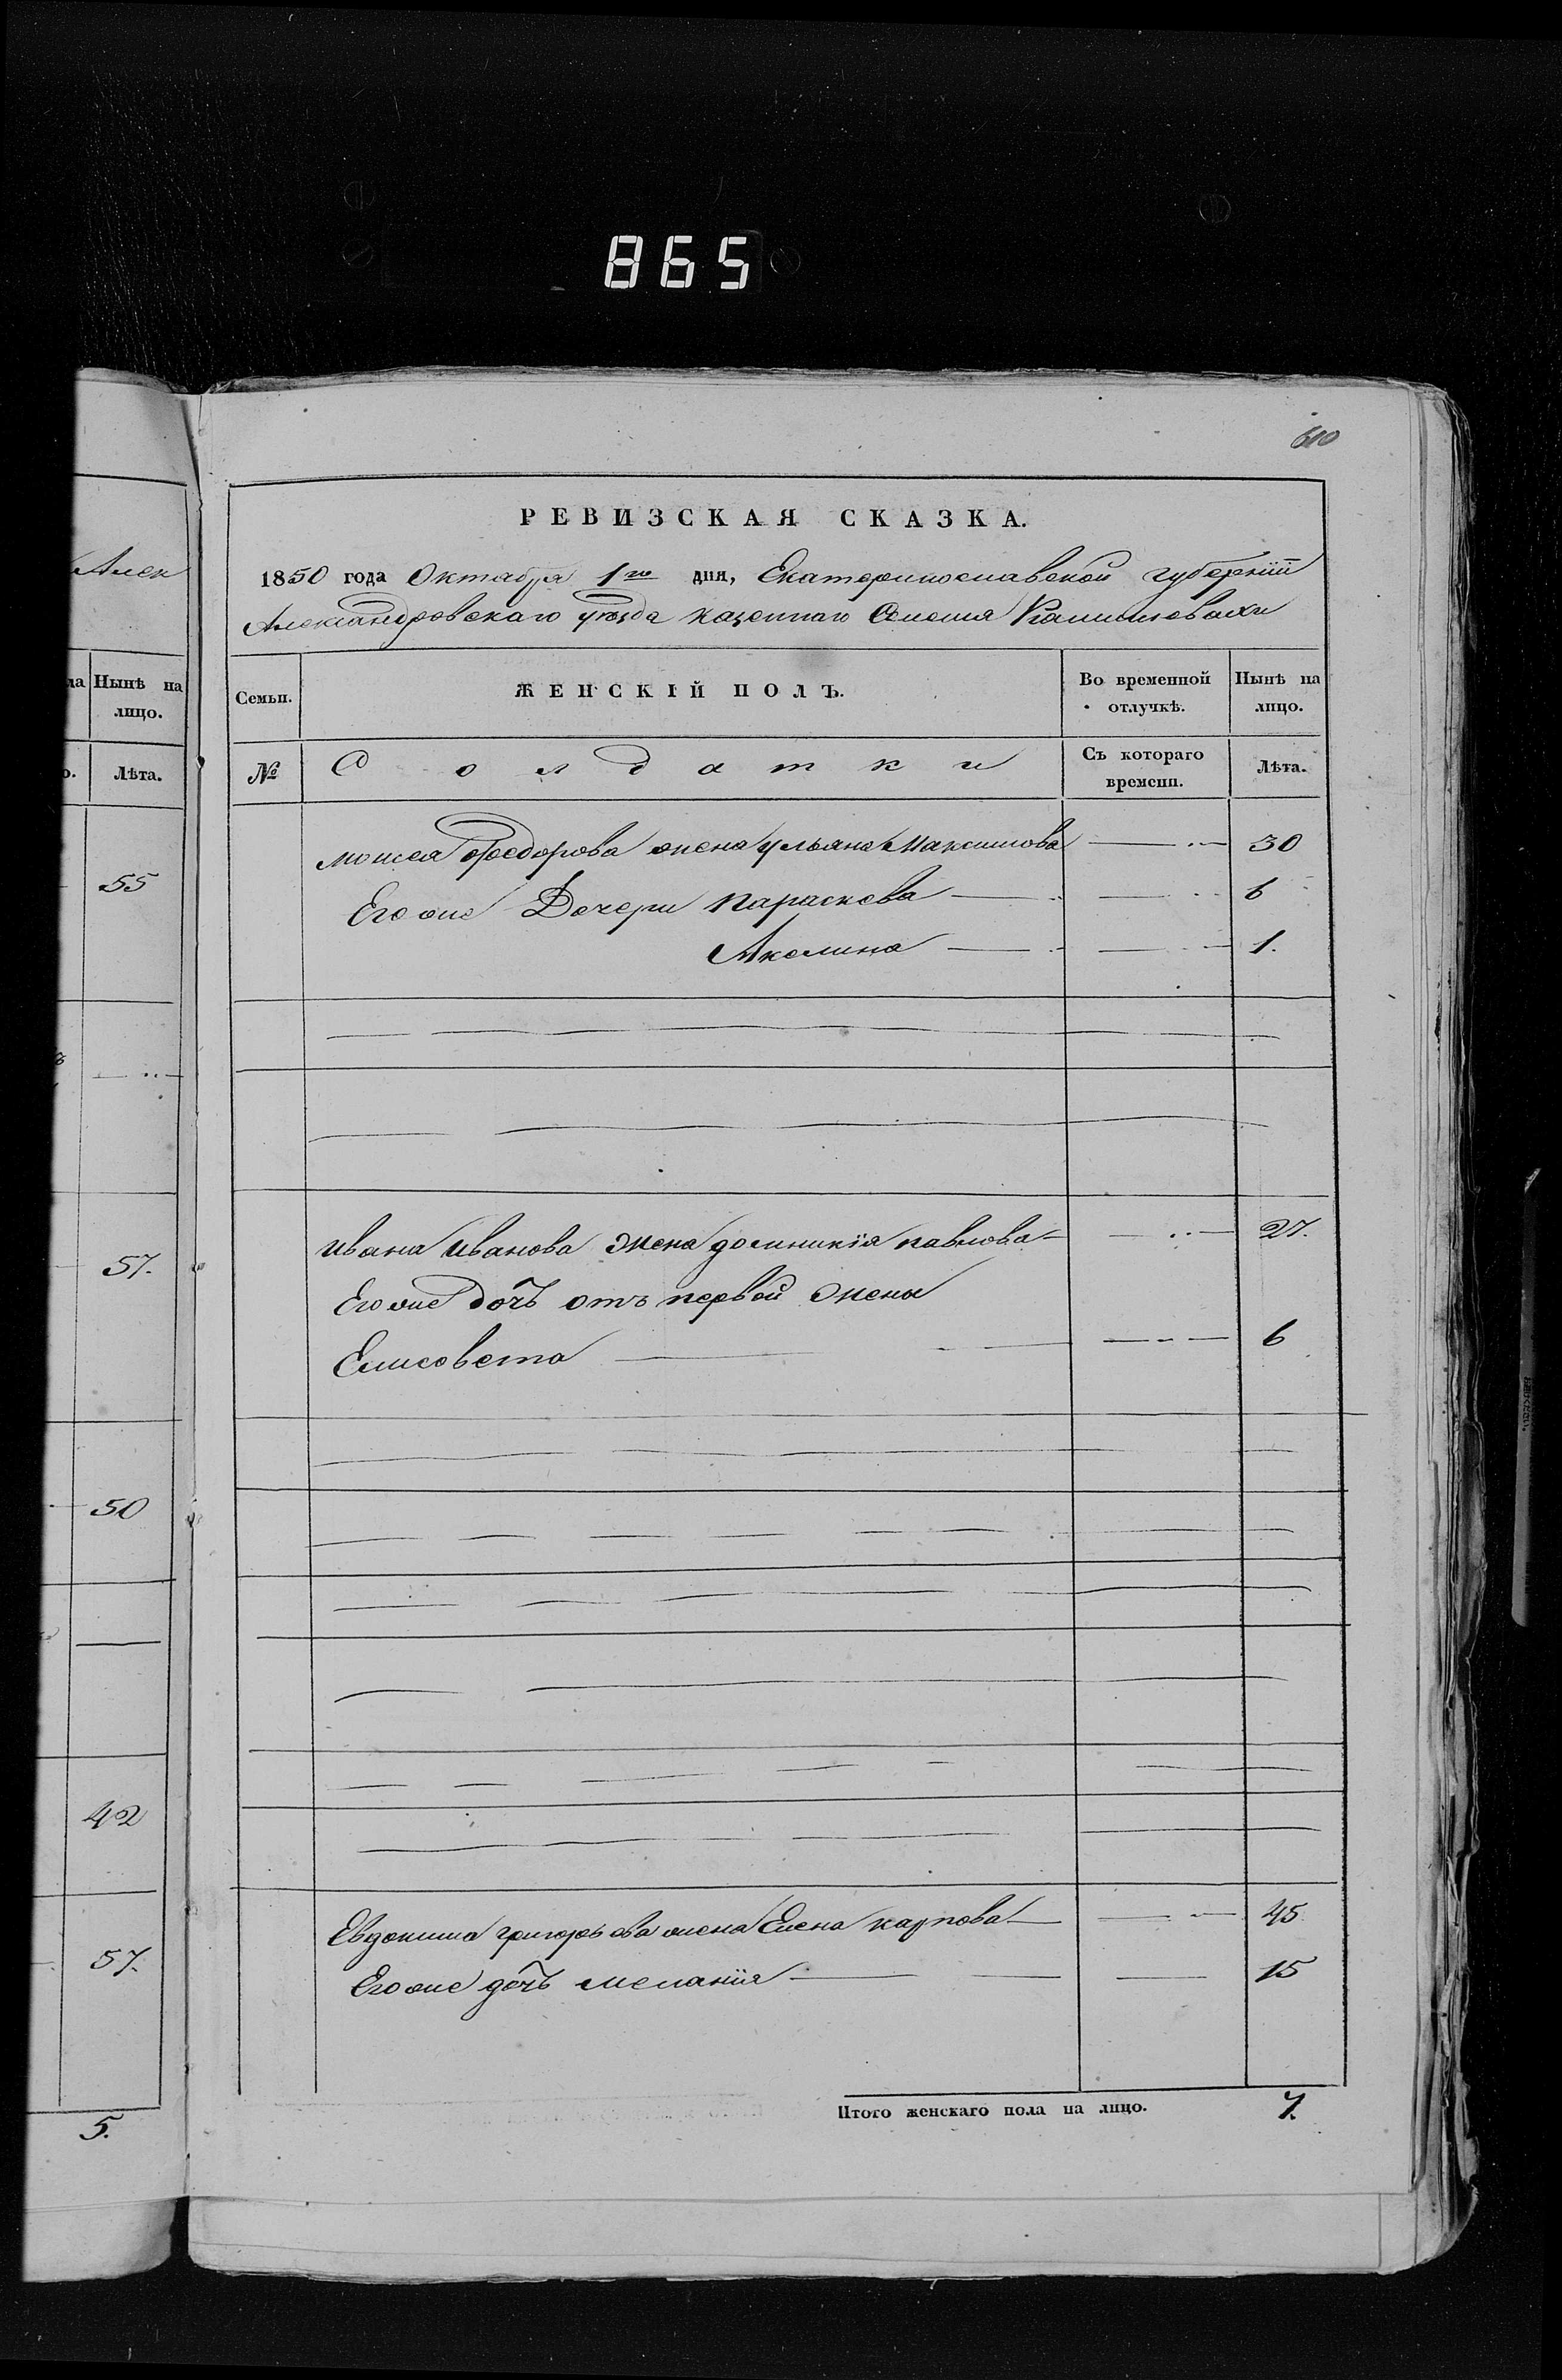 865
610
Алек
РЕВИЗСКАЯ СКАЗКА.
1850 года Октября 1го дня, Екатеринославской губернїи
Александровскаго уѣзда казеннаго Селенія Камышевахи
ла Нынѣ на лицо.
о. Лѣта.
55
57.
50
42
57.
5.
Семьи. ЖЕНСКІЙ ПОЛЪ. Во временной отлучкѣ. Нынѣ на лицо.
№ Солдатки Съ котораго времени. Лѣта.
Моисея Федорова жена Ульяна Максимова 30
Его же Дочери Параскева 6
Акелина 1.
Ивана Иванова жена Доминикїя Павлова 27.
Его же дочь отъ первой жены
Елисовета 6
Евдокима Григорьева жена Елена Карпова 45
Его же дочь Меланїя 15
Итого женскаго пола на лицо. 7.